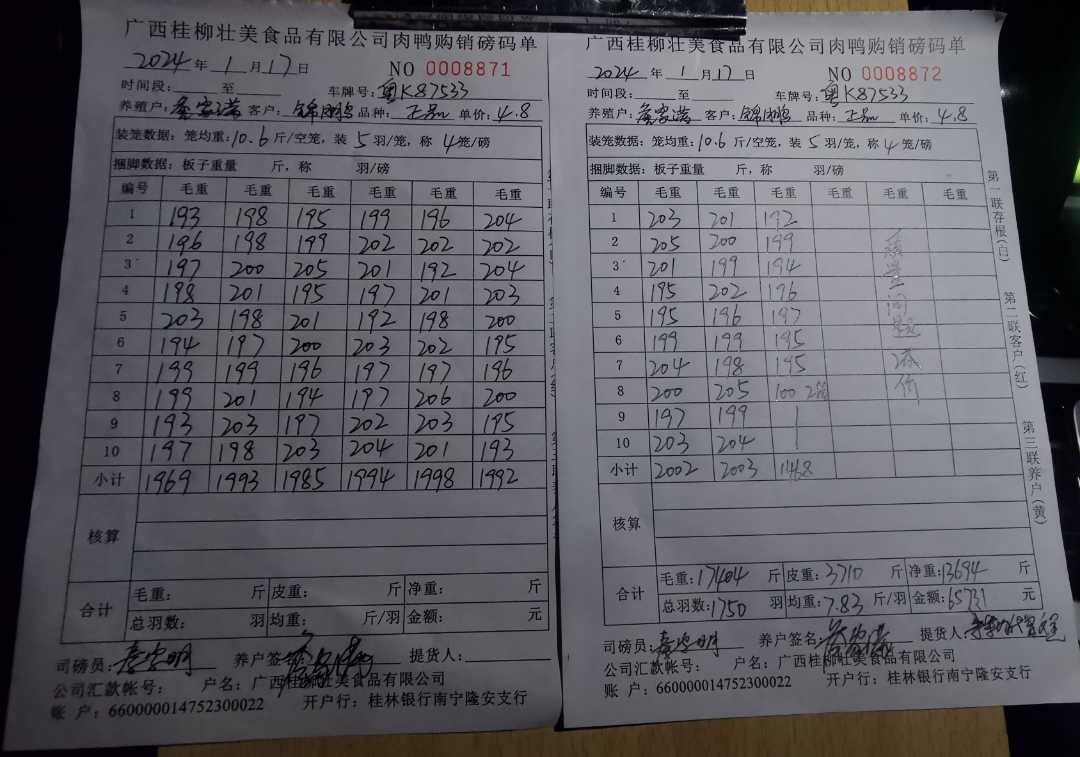 广西桂柳壮美食品有限公司肉鸭购销磅码单
2024年1月17日 NO 0008871
时间段: 至 车牌号: 粤K87533
养殖户: 客户: 锦鹏 品种: 正品 单价: 4.8
装笼数据: 笼均重: 10.6 斤/空笼, 装 5 羽/笼, 称 4 笼/磅
捆脚数据: 板子重量 斤, 称 羽/磅
编号 毛重 毛重 毛重 毛重 毛重 毛重
1 193 198 195 199 196 204
2 196 198 199 202 202 202
3 197 200 205 201 192 204
4 198 201 195 197 201 203
5 203 198 201 192 198 200
6 194 197 200 203 202 195
7 199 199 196 197 197 196
8 199 201 194 197 206 200
9 193 203 197 202 203 195
10 197 198 203 204 201 193
小计 1969 1993 1985 1994 1998 1992
核算
合计 毛重: 斤 皮重: 斤 净重: 斤
总羽数: 羽 均重: 斤/羽 金额: 元
司磅员: 养户签名: 提货人:
公司汇款帐号: 户名: 广西桂柳壮美食品有限公司
账 户: 660000014752300022 开户行: 桂林银行南宁隆安支行
广西桂柳壮美食品有限公司肉鸭购销磅码单
2024年1月17日 NO 0008872
时间段: 至 车牌号: 粤K87533
养殖户: 客户: 锦鹏 品种: 正品 单价: 4.8
装笼数据: 笼均重: 10.6 斤/空笼, 装 5 羽/笼, 称 4 笼/磅
捆脚数据: 板子重量 斤, 称 羽/磅
编号 毛重 毛重 毛重 毛重 毛重 毛重
1 203 201 192
2 205 200 199
3 201 199 194
4 195 202 196
5 195 196 197
6 199 199 195
7 204 198 195
8 200 205 100 2笼
9 197 199
10 203 204
小计 2002 2003 1468
质量问题
价
核算
合计 毛重: 17404 斤 皮重: 3710 斤 净重: 13694 斤
总羽数: 1750 羽 均重: 7.83 斤/羽 金额: 65731 元
司磅员: 养户签名: 提货人:
公司汇款帐号: 户名: 广西桂柳壮美食品有限公司
账 户: 660000014752300022 开户行: 桂林银行南宁隆安支行
第一联存根(白)
第二联客户(红)
第三联养户(黄)